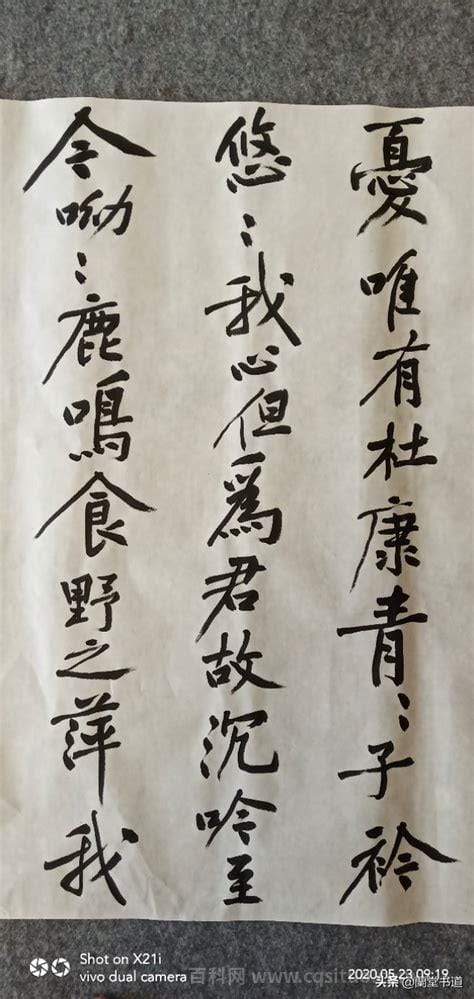 憂唯有杜康青〻子衿
悠〻我心但為君故沉吟至
今呦〻鹿鳴食野之萍我
Shot on X21i
vivo dual camera
百科网 www.cqsit
2020.05.23 09:19
头条 @蘭堂书道